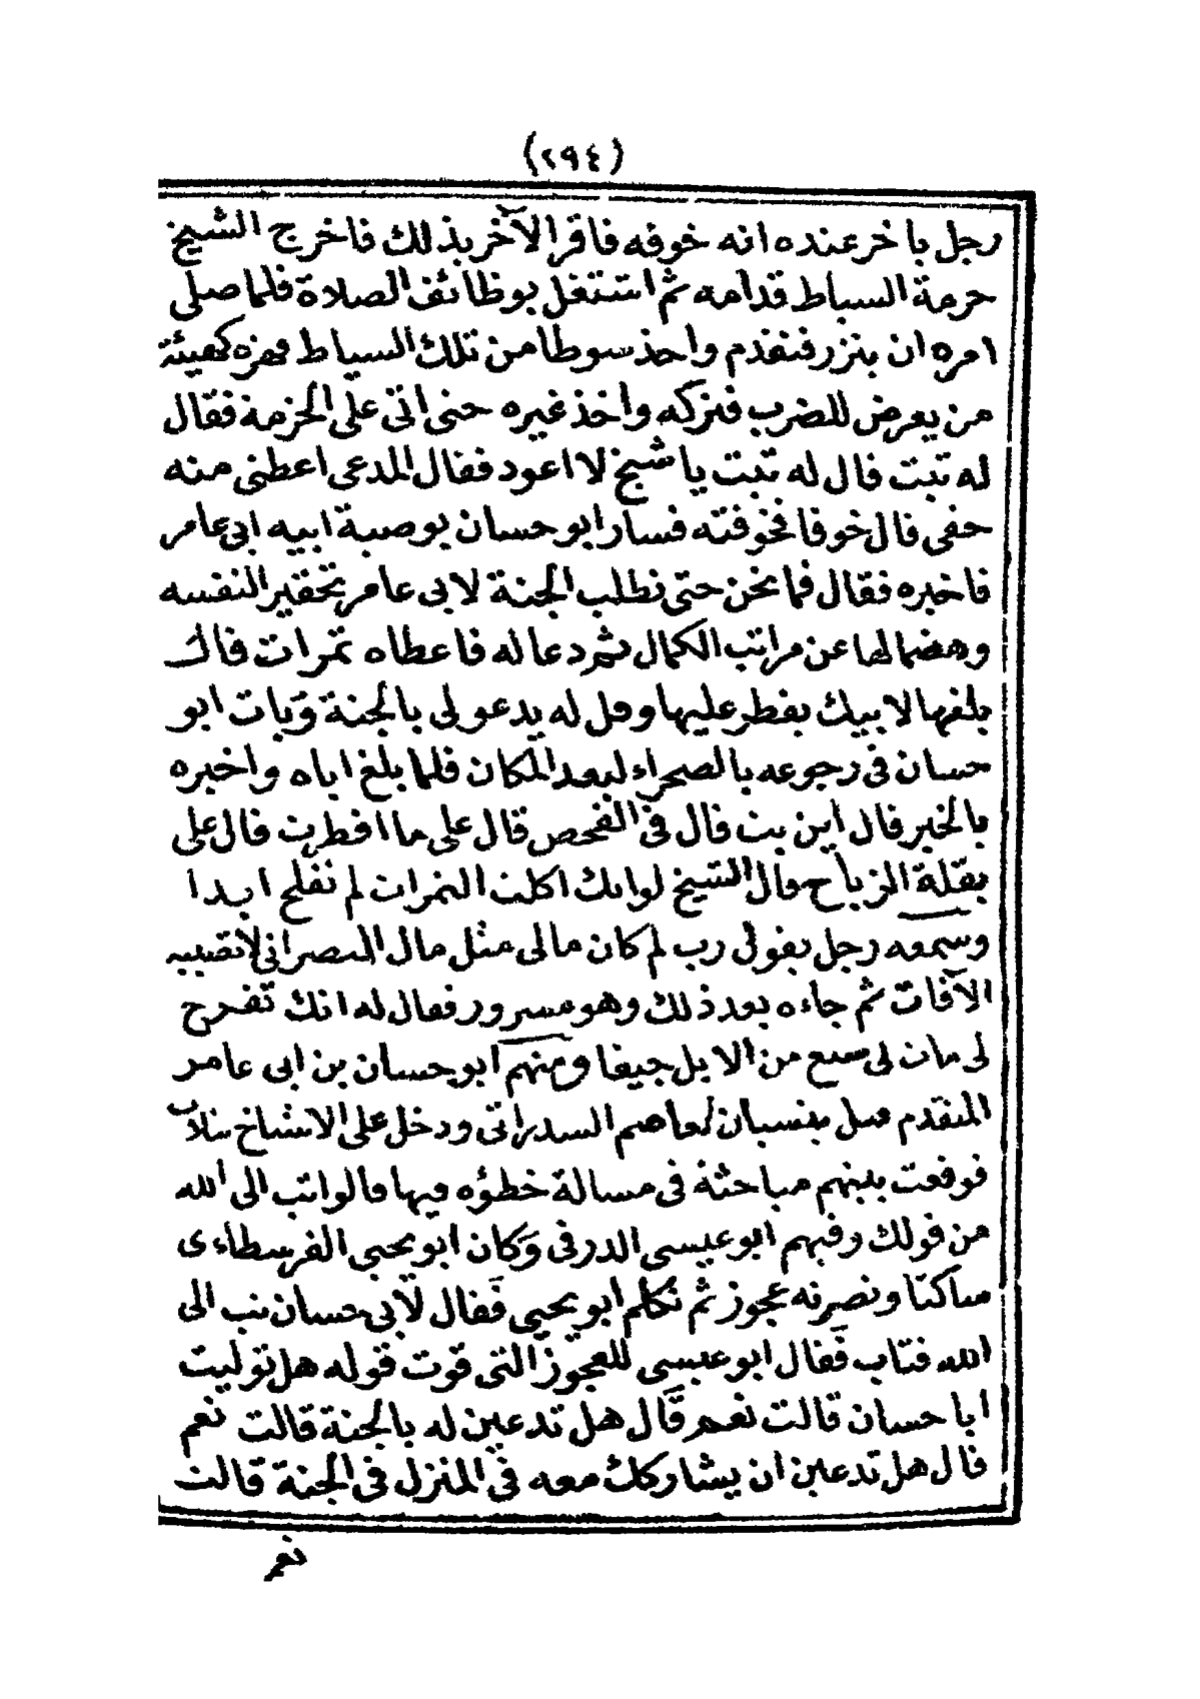 (٢٩٤)
رجل باخر عنده انه خوفه فاقر الآخر بذلك فاخرج الشيخ
حزمة السياط قدامه ثم اشتغل بوظائف الصلاة فلما صلى
امره ان ينزر فتقدم واخذ سوطا من تلك السياط فهزه كهيئة
من يعرض للضرب فتركه واخذ غيره حتى اتى على الحزمة فقال
له تبت قال له تبت يا شيخ لا اعود فقال المدعى اعطنى منه
حقى قال خوفا فخوفته فسار ابو حسان بوصية ابيه ابى عامر
فاخبره فقال فما نحن حتى نطلب الجنة لابى عامر تحقيرا لنفسه
وهضما لها عن مراتب الكمال ثم دعا له فاعطاه تمرات قال
بلغها لابيك يفطر عليها وقل له يدعو لى بالجنة وبات ابو
حسان فى رجوعه بالصحراء لبعد المكان فلما بلغ اباه واخبره
بالخبر قال اين بت قال فى الفحص قال على ما افطرت قال على
بقلة الرباح قال الشيخ لو انك اكلت التمرات لم تفلح ابدا
وسمعه رجل يقول رب لم كان مالى مثل مال النصرانى لا تصيبه
الآفات ثم جاءه بعد ذلك وهو مسرور فقال له انك تفرح
لى مات لى سبع من الابل جيفا ومنهم ابو حسان بن ابى عامر
المتقدم قيل بنسيان لعاصم السدراتى ودخل على الاشياخ بتلات
فوقعت بينهم مباحثة فى مسالة خطؤه فيها قالوا تب الى الله
من قولك وفيهم ابو عيسى الدرفى وكان ابو يحيى الفرسطاءى
ساكتا ونصرته عجوز ثم تكلم ابو يحيى فقال لابى حسان تب الى
الله فتاب فقال ابو عيسى للعجوز التى قوت قوله هل توليت
ابا حسان قالت نعم قال هل تدعين له بالجنة قالت نعم
قال هل تدعين ان يشاركك معه فى المنزل فى الجنة قالت
نعم